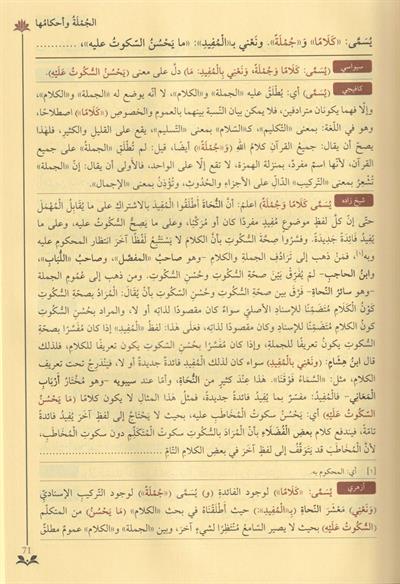 الجُمْلَةُ وأحكامُها
يُسَمَّى: «كَلَامًا» وَ«جُمْلَةً». ونَعْنِي بـ«الْمُفِيدِ»: «ما يَحْسُنُ السّكوتُ عليه»، ............
سيواسي (يُسَمَّى: كَلَامًا وَجُمْلَةً، وَنَعْنِي بِالْمُفِيدِ: مَا) دلَّ على معنى (يَحْسُنُ السُّكُوتُ عَلَيْهِ).
كافيجي (يُسَمَّى) أي: يُطْلَقُ عليه «الجملة» و«الكلام»، لا أنّه يوضع له «الجملة» و«الكلام»،
وإلّا فهما يكونان مترادفين، فلا يمكن بيان النسبة بينهما بالعموم والخصوص («كَلَامًا») اصطلاحًا،
وهو في اللُّغة: بمعنى «التَّكليم»، كـ«السَّلام» بمعنى «التَّسليم»، يقع على القليل والكثير، فلهذا
يصحّ أن يقال: جميعُ القرآن كلامُ اللهِ (وَ«جُمْلَةً») أيضًا، قيل: لم تُطْلَقِ «الجملة» على جميعِ
القرآن، لأنّها اسم مفردٌ، بمنزلة الهمزة، لا تقع إلّا على الواحد، فالأولى أن يقال: إنّ «الجملة»
تُشْعِرُ بمعنى «التركيب» الدَّالِّ على الأجزاء والحُدوث، وتُؤْذِنُ بمعنى «الإجمال».
شيخ زاده (يُسَمَّى كَلَامًا وَجُمْلَةً) اعلم: أنَّ النُّحاةَ أطلقوا الْمُفِيدَ بالاشتراكِ على ما يُقابلُ الْمُهْمَلَ
حتّى إنّ كلَّ لفظٍ موضوعٍ مُفيدٌ مفردًا كان أو مُرَكَّبًا، وعلى ما يصحُّ السُّكوت عليه، وعلى ما
يُفِيدُ فائدةً جديدةً. وفسَّرُوا صحَّةَ السُّكُوتِ بأنَّ الكلامَ لا يَسْتَتْبِعُ لَفْظًا آخرَ انتظارَ المحكومِ عليه
وبه[١]، فمَن ذهب إلى تَرَادُفِ الجملةِ والكلامِ –وهو صاحبُ «المفصّل»، وصاحبُ «اللُّبَاب»،
وابنُ الحاجبِ– لم يُفَرِّقْ بَيْنَ صحَّةِ السُّكُوتِ وحُسْنِ السُّكوتِ. ومن ذهب إلى عُموم الجملةِ
–وهو سائرُ النُّحاةِ– فرَّق بين صحَّةِ السُّكوتِ وحُسْنِ السُّكوتِ بأنْ يُقالَ: الْمُرَادُ بصحَّةِ السُّكوتِ
كَوْنُ الْكَلَامِ مُتَضَمِّنًا للإسنادِ الأصليِّ سواءً كان مقصودًا لذاته أو لا، والمراد بحُسْنِ السُّكوتِ:
كونُ الكلامِ مُتضمِّنًا للإسنادِ وكان مقصودًا لذاته، فعلى هذا: لفظُ «المفيد» إذا كان مُفَسَّرًا بصحّةِ
السُّكوتِ يكونُ تعريفًا للجملةِ، وإذا كان مُفَسَّرًا بحُسْنِ السُّكوتِ يكون تعريفًا للكلام، فلذلك
قال ابنُ هِشَامٍ: (ونَعْنِي بِالْمُفِيدِ) سواء كان لذلك الْمُفيدِ فائدةٌ جديدةٌ أو لا، فيَنْدَرِجُ تحت تعريفِ
الكلامِ، مثل: «السَّمَاءُ فَوْقَنَا». هذا عِنْدَ كثيرٍ من النُّحَاةِ، وأمّا عند سيبويه –وهو مُختارُ أَرْبَابِ
الْمَعَانِي– فالْمُفِيدُ: مفسّرٌ بما يُفِيدُ فائدةً جديدةً، فمثلُ هذا المثالِ لا يكونُ كلامًا (مَا يَحْسُنُ
السُّكُوتُ عَلَيْهِ) أي: يَحْسُنُ سكوتُ الْمُخَاطَبِ عليه، بحيث لا يَحْتَاجُ إلى لفظٍ آخرَ يُفِيدُ فائدةً
تامّةً، فيندفع كلامُ بعضِ الفُضَلَاءِ بأنَّ الْمُرَادَ بالسُّكوتِ سكوتُ الْمُتَكَلِّمِ دون سكوتِ الْمُخَاطَبِ،
لأنَّ الْمُخَاطَبَ قد يَتَوَقَّفُ إلى لفظٍ آخرَ في بعضِ الكلامِ التّامِّ ..................
[١] أي: المحكوم به.
أزهري يُسَمَّى: «كَلَامًا») لوجود الفائدةِ (و) يُسَمَّى («جُمْلَةً») لوجود التّركيبِ الإسناديِّ
(وَنَعْنِي) مَعْشَرَ النُّحاةِ (بـ«الْمُفِيدِ»:) حيث أَطْلَقْنَاهُ في بحثِ «الكلام» (مَا يَحْسُنُ) من المتكلّم
(السُّكُوتُ عَلَيْهِ) بحيث لا يصير السّامعُ مُنْتَظِرًا لشيءٍ آخرَ، وبين «الجملة» و«الكلام» عمومٌ مطلق
71